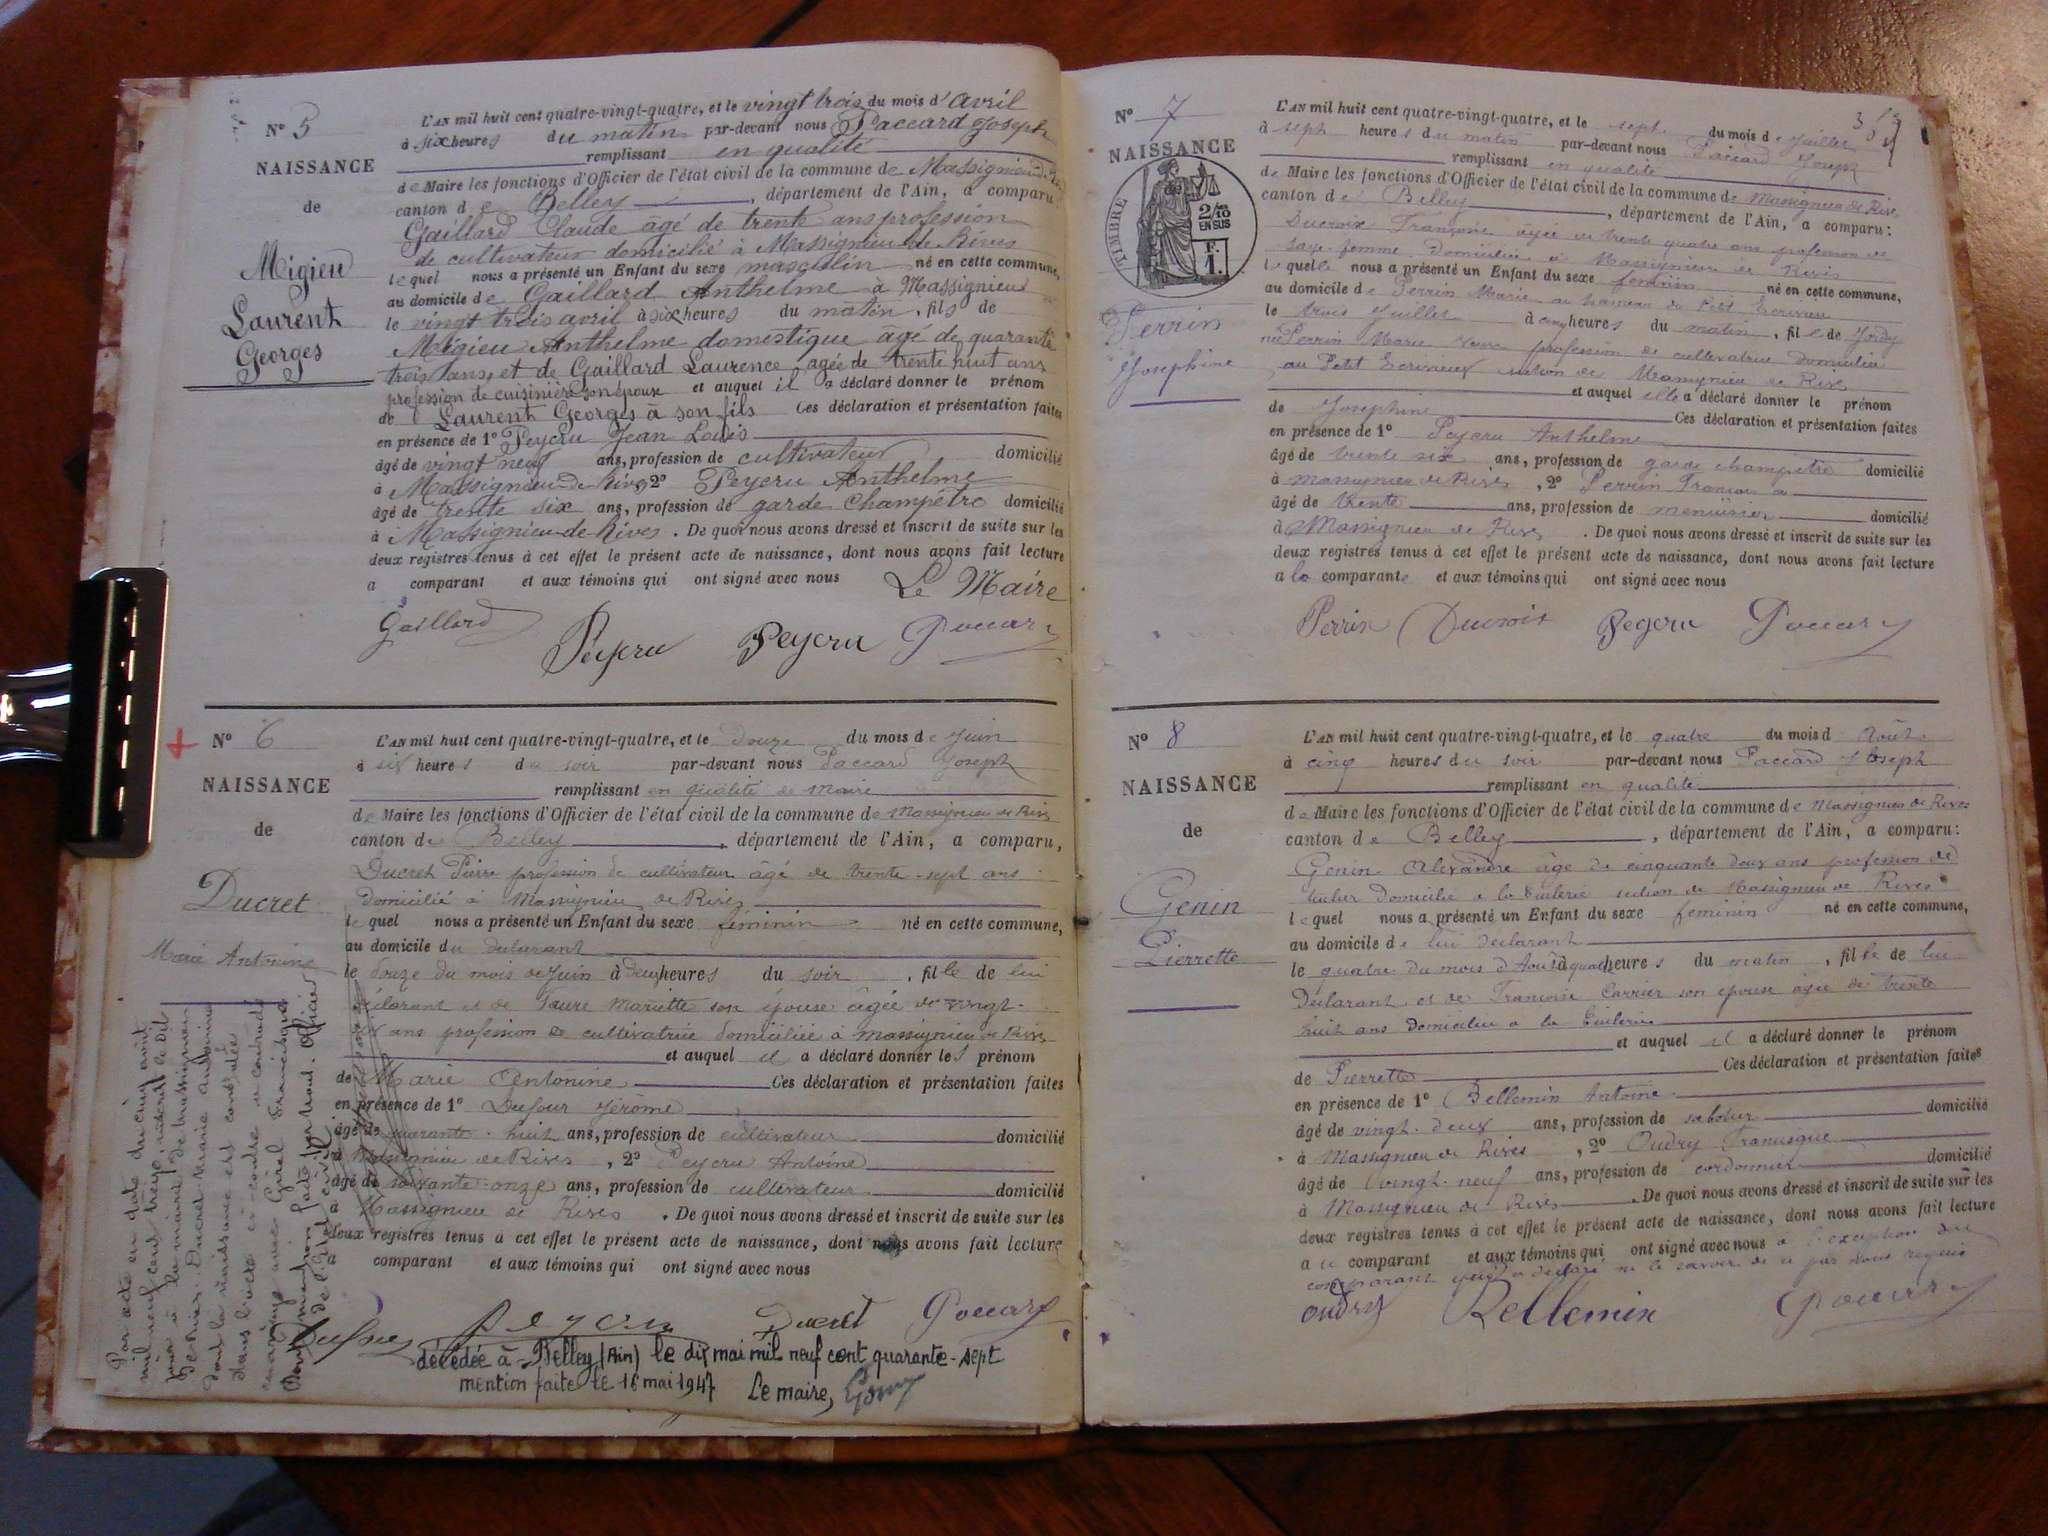 N° 5
NAISSANCE
de
Migieu
Laurent
Georges
L'AN mil huit cent quatre-vingt-quatre, et le vingt trois du mois d' avril
à six heures du matin par-devant nous Paccard Joseph
remplissant en qualité
de Maire les fonctions d'Officier de l'état civil de la commune de Massignieu de
canton de Belley, département de l'Ain, a comparu
Gaillard Claude âgé de trente ans profession
de cultivateur domicilié à Massignieu de Rives
lequel nous a présenté un Enfant du sexe masculin né en cette commune,
au domicile de Gaillard Anthelme à Massignieu
le vingt trois avril à six heures du matin, fils de
Migieu Anthelme domestique âgé de quarante
trois ans, et de Gaillard Laurence agée de trente huit ans
profession de cuisinière son époux et auquel il a déclaré donner le prénom
de Laurent Georges à son fils Ces déclaration et présentation faites
en présence de 1° Peycru Jean Louis
âgé de vingt neuf ans, profession de cultivateur domicilié
à Massignieu de Rives, 2° Peycru Anthelme
âgé de trente six ans, profession de garde champêtre domicilié
à Massignieu-de-Rives. De quoi nous avons dressé et inscrit de suite sur les
deux registres tenus à cet effet le présent acte de naissance, dont nous avons fait lecture
a comparant et aux témoins qui ont signé avec nous Le Maire
Gaillard Peycru Peycru Paccard
N° 6
NAISSANCE
de
Ducret
Marie Antonine
L'AN mil huit cent quatre-vingt-quatre, et le douze du mois de Juin
à six heures du soir par-devant nous Paccard Joseph
remplissant en qualité de maire
de Maire les fonctions d'Officier de l'état civil de la commune de Massignieu de Rives
canton de Belley, département de l'Ain, a comparu,
Ducret Pierre profession de cultivateur âgé de trente-sept ans
domicilié à Massignieu de Rives
lequel nous a présenté un Enfant du sexe féminin né en cette commune,
au domicile du déclarant
le douze du mois de Juin à deux heures du soir, fille de lui
déclarant et de Mariette son épouse âgée de vingt-
six ans profession de cultivatrice domiciliée à Massignieu de Rives
et auquel il a déclaré donner les prénom
de Marie Antonine Ces déclaration et présentation faites
en présence de 1° Dufour Jérôme
âgé de quarante-huit ans, profession de cultivateur domicilié
à Massignieu de Rives, 2° Peycru Antoine
âgé de soixante-onze ans, profession de cultivateur domicilié
Massignieu de Rives. De quoi nous avons dressé et inscrit de suite sur les
deux registres tenus à cet effet le présent acte de naissance, dont nous avons fait lecture
comparant et aux témoins qui ont signé avec nous
Dufour Peycru Ducret Paccard
décédée à Belley (Ain) le dix mai mil neuf cent quarante-sept
mention faite le 16 mai 1947 Le maire,
Par acte en date du cinq août
mil neuf cent treize,
à la mairie de Massignieu
de Rives, Ducret Marie Antonine
dont la naissance est constatée
dans l'acte ci-contre a contracté
mariage avec
mention faite par nous, Officier
de l'état civil
N° 7
NAISSANCE
de
TIMBRE
2/10
EN SUS
F.
1.
Perrin
Josephine
L'AN mil huit cent quatre-vingt-quatre, et le sept du mois de Juillet
à sept heures du matin par-devant nous Paccard Joseph
remplissant en qualité
de Maire les fonctions d'Officier de l'état civil de la commune de Massignieu de Rives
canton de Belley, département de l'Ain, a comparu:
Ducroix Françoise agée de trente quatre ans profession de
sage-femme domiciliée à Massignieu de Rives
lequelle nous a présenté un Enfant du sexe feminin né en cette commune,
au domicile de Perrin Marie au hameau du Petit Ecrivieu
le trois Juillet à cinq heures du matin, fille de
née Perrin Marie profession de cultivatrice domiciliée
au Petit Ecrivieux section de Massignieu de Rives
et auquel elle a déclaré donner le prénom
de Josephine Ces déclaration et présentation faites
en présence de 1° Peycru Anthelme
âgé de trente six ans, profession de garde champêtre domicilié
à Massignieu de Rives, 2° Perrin
âgé de trente ans, profession de menuisier domicilié
à Massignieu de Rives. De quoi nous avons dressé et inscrit de suite sur les
deux registres tenus à cet effet le présent acte de naissance, dont nous avons fait lecture
a la comparante et aux témoins qui ont signé avec nous
Perrin Ducroix Peycru Paccard
N° 8
NAISSANCE
de
Genin
Pierrette
L'AN mil huit cent quatre-vingt-quatre, et le quatre du mois d Août
à cinq heures du soir par-devant nous Paccard Joseph
remplissant en qualité
de Maire les fonctions d'Officier de l'état civil de la commune de Massignieu de Rives
canton de Belley, département de l'Ain, a comparu:
Genin Alexandre âgé de cinquante deux ans profession de
tuilier domicilié a la tuilerie section de Massignieu de Rives
lequel nous a présenté un Enfant du sexe feminin né en cette commune,
au domicile de lui déclarant
le quatre du mois d'Août à quatre heures du matin, fille de lui
Déclarant et de Françoise Carrier son epouse agée de trente
huit ans domiciliée a la tuilerie
et auquel il a déclaré donner le prénom
de Pierrette Ces déclaration et présentation faites
en présence de 1° Bellemin Antoine
âgé de vingt-deux ans, profession de sabotier domicilié
à Massignieu de Rives, 2° Oudry Françisque
âgé de vingt-neuf ans, profession de cordonnier domicilié
à Massignieu de Rives. De quoi nous avons dressé et inscrit de suite sur les
deux registres tenus à cet effet le présent acte de naissance, dont nous avons fait lecture
au comparant et aux témoins qui ont signé avec nous a l'exception du
comparant qui a déclaré ne le savoir de ce par nous requis
Oudry Bellemin Paccard